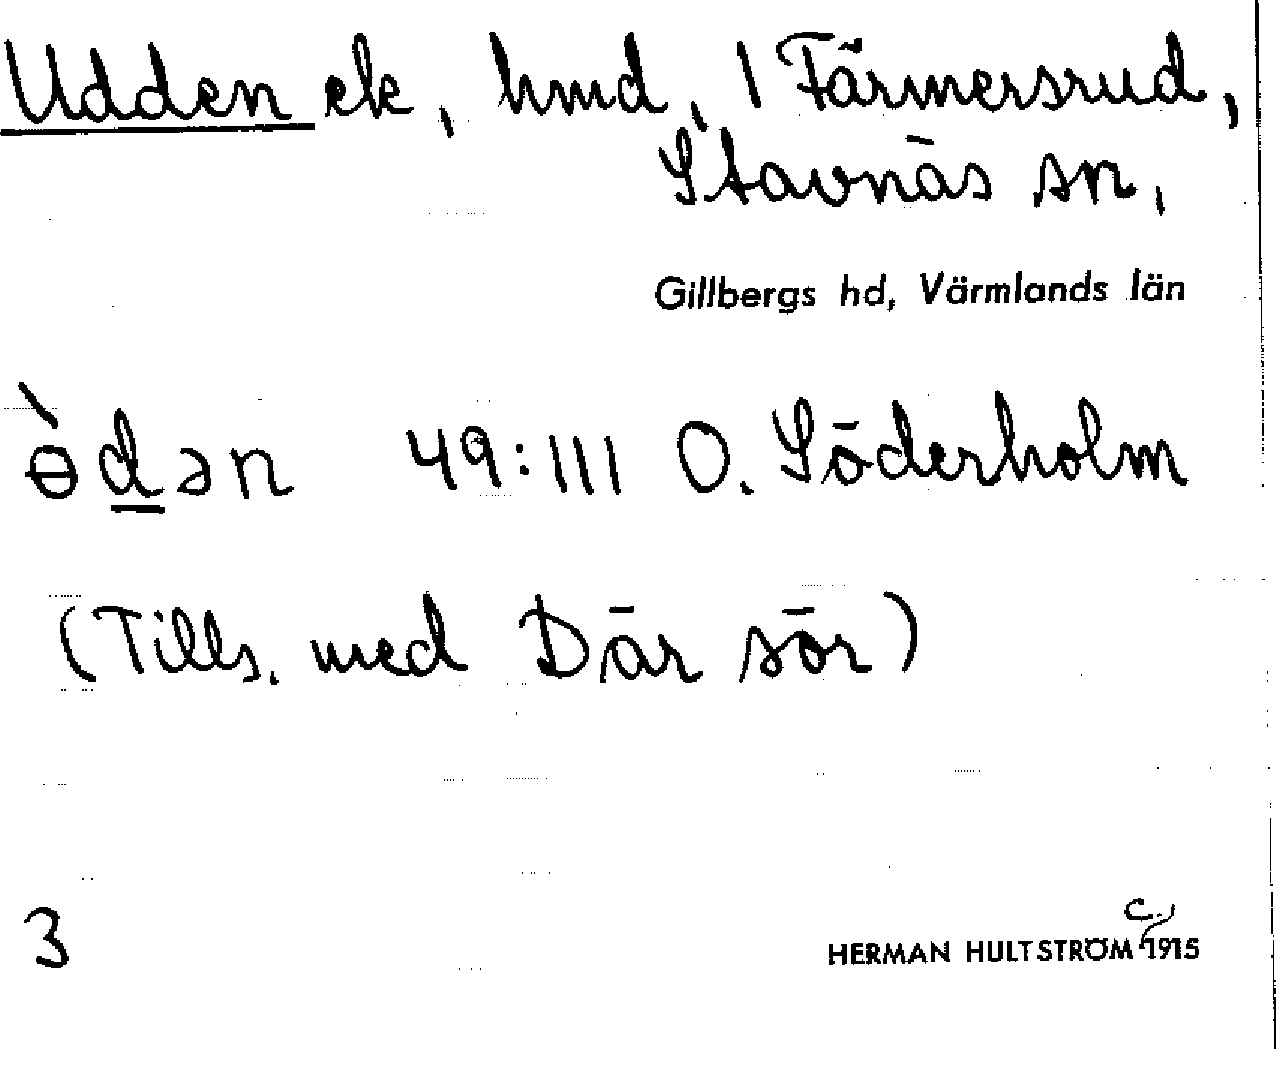 Udden ek, hmd, 1 Färmersrud,
Stavnäs sn,
Gillbergs hd, Värmlands län
ɵ̀dən 49:111 O. Söderholm
(Tills. med Där sör)
3
c.
HERMAN HULTSTRÖM 1915